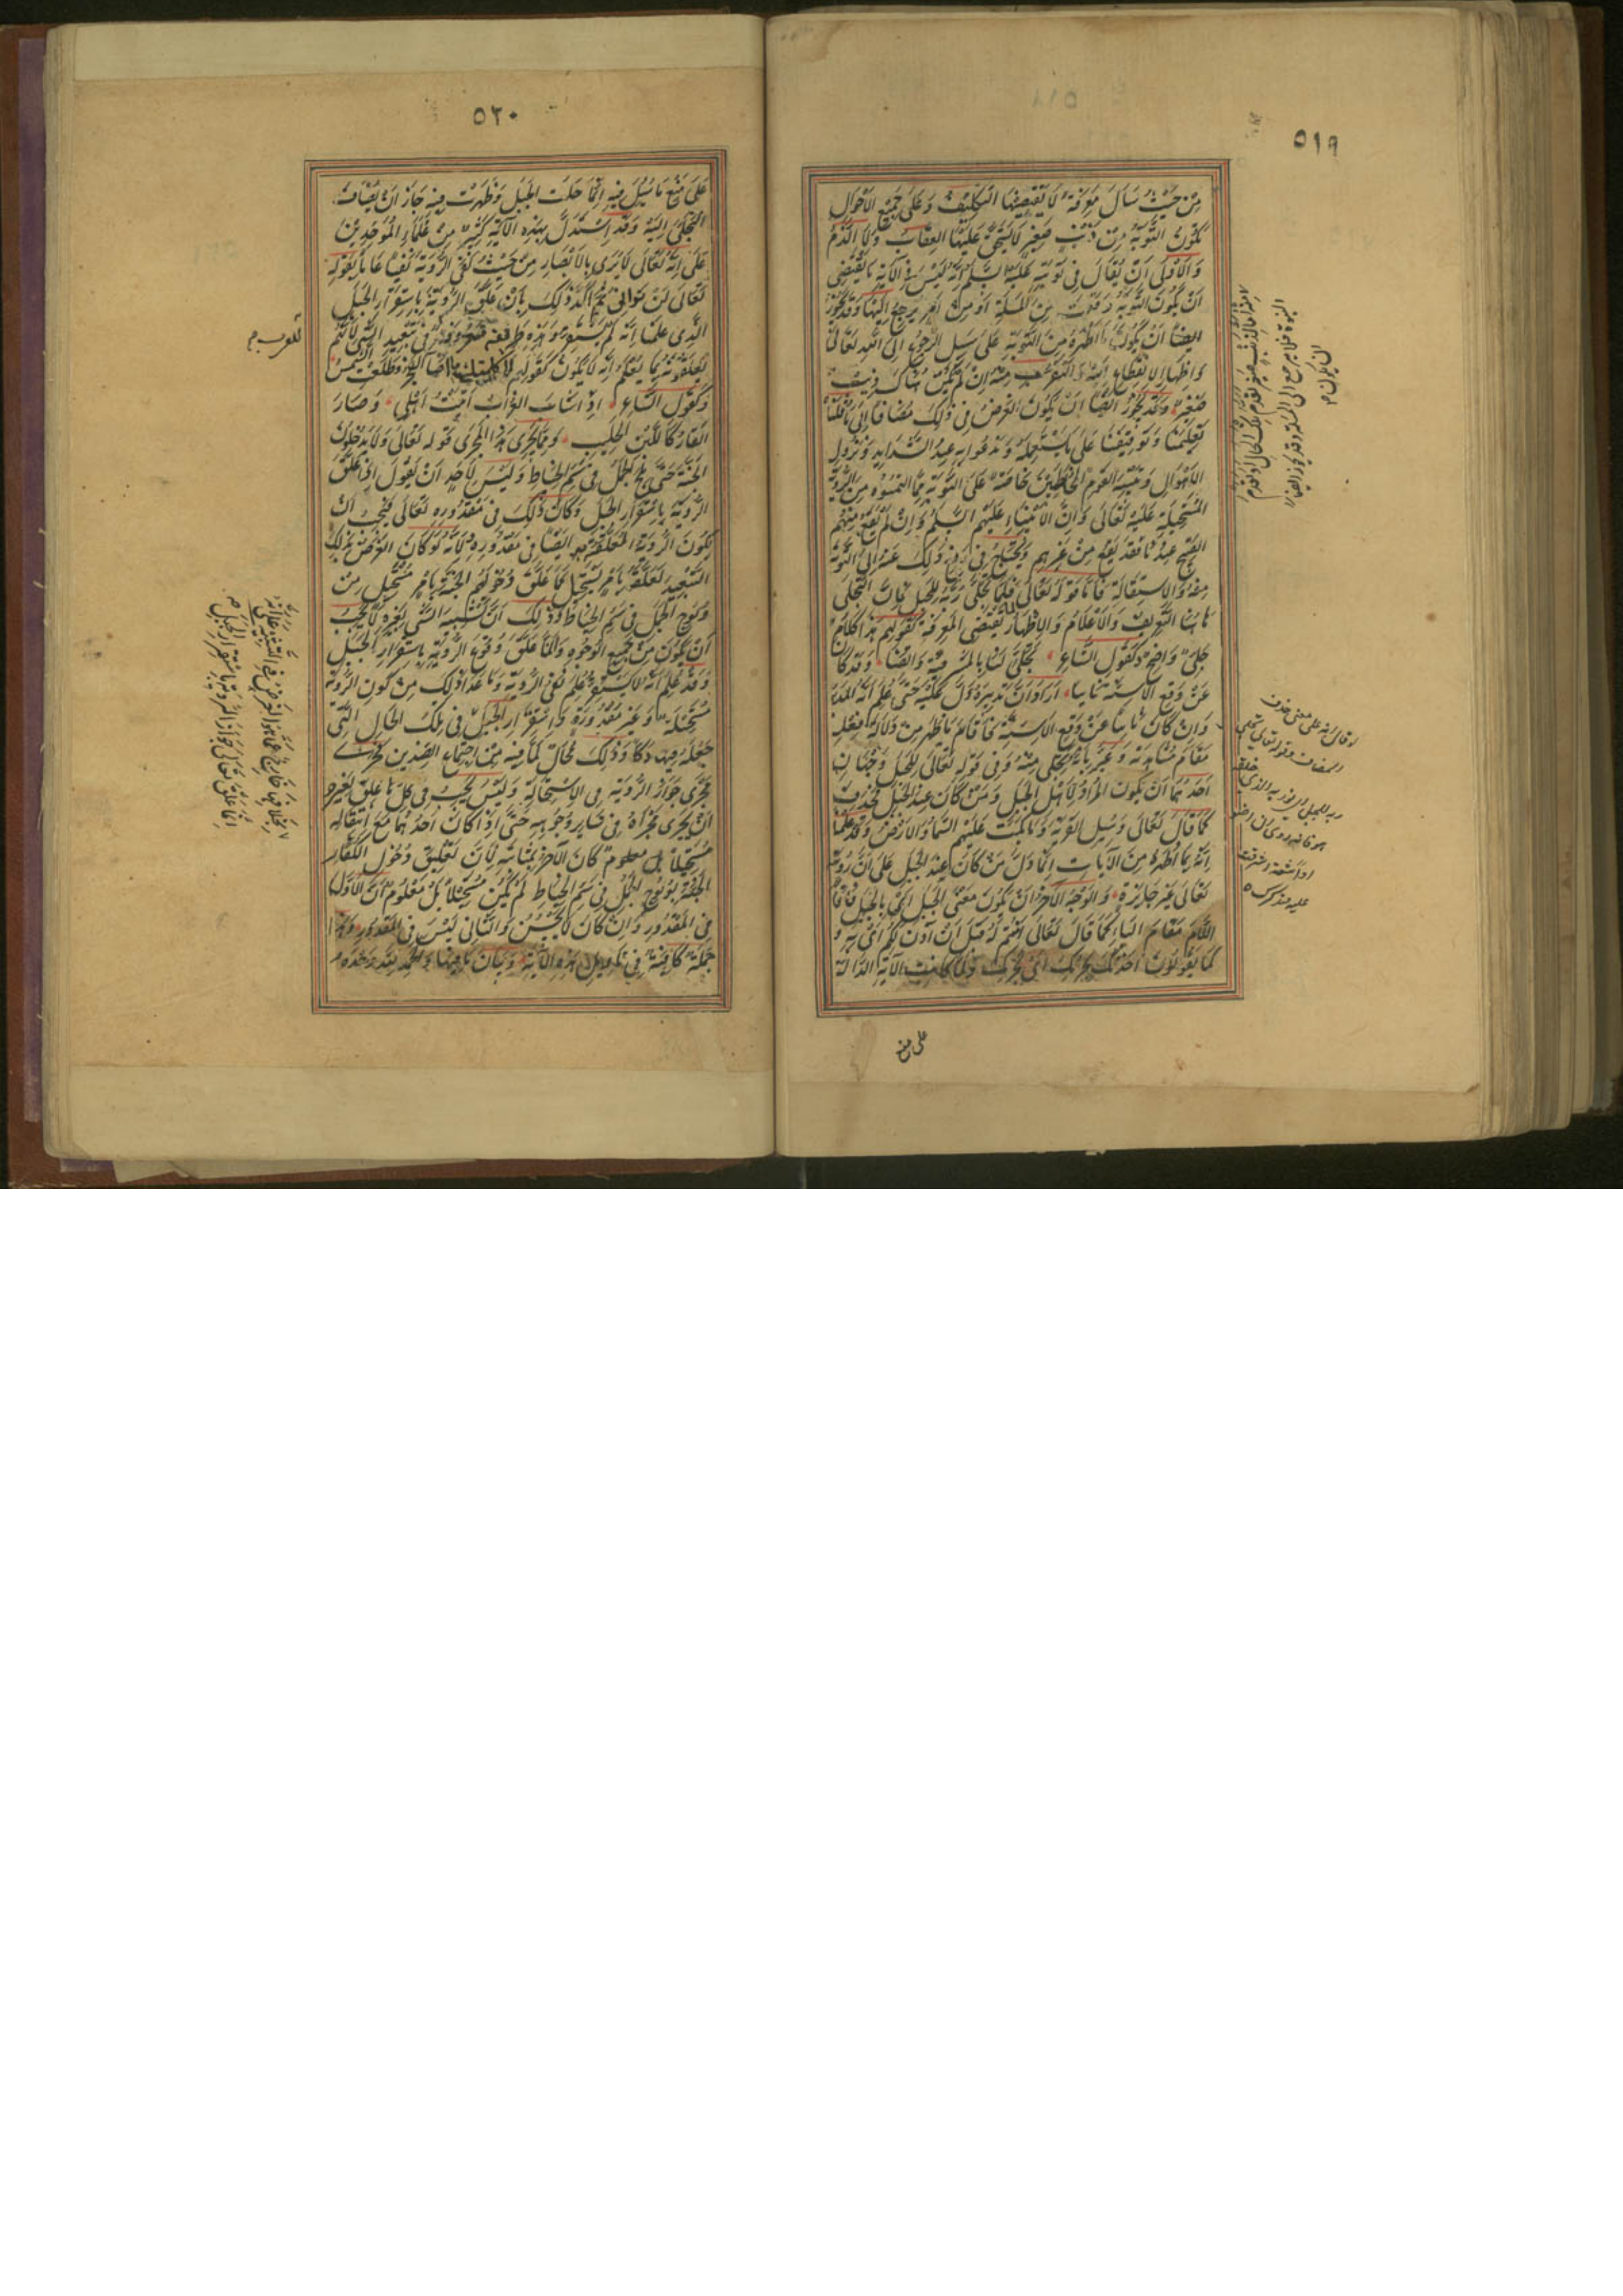 ٥١٩
مِنْ حَيْثُ سَأَلَ مَعْرِفَةً لَا يَقْتَضِيهَا التَّكْلِيفُ وَعَلَى جَمِيعِ الْأَحْوَالِ
تَكُونُ التَّوْبَةُ مِنْ ذَنْبٍ صَغِيرٍ لَا يُسْتَحَقُّ عَلَيْهَا الْعِقَابُ وَلَا الذَّمُّ
وَالْأَوْلَى أَنْ يُقَالَ فِي تَوْبَتِهِ عَلَيْهِ السَّلَمُ إِنَّهُ لَيْسَ فِي الْآيَةِ مَا يَقْتَضِي
أَنْ يَكُونَ التَّوْبَةُ وَقَعَتْ مِنَ الْمَسْئَلَةِ أَوْ مِنْ أَمْرٍ يَرْجِعُ إِلَيْهَا وَقَدْ يَجُوزُ
أَيْضًا أَنْ يَكُونَ مَا أَظْهَرَهُ مِنَ التَّوْبَةِ عَلَى سَبِيلِ الرُّجُوعِ إِلَى اللَّهِ تَعَالَى
وَإِظْهَارِ الِانْقِطَاعِ إِلَيْهِ وَالتَّقَرُّبِ مِنْهُ وَإِنْ لَمْ يَكُنْ هُنَاكَ ذَنْبٌ
صَغِيرٌ وَقَدْ يَجُوزُ أَيْضًا أَنْ يَكُونَ الْغَرَضُ فِي ذَلِكَ مُضَافًا إِلَى مَا قُلْنَا
تَعْلِيمَنَا وَتَوْقِيفَنَا عَلَى مَا نَسْتَعْمِلُهُ وَنَدْعُو بِهِ عِنْدَ الشَّدَايِدِ وَنُزُولِ
الْأَهْوَالِ وَتَنْبِيهَ الْقَوْمِ الْمُخْطِئِينَ خَاصَّةً عَلَى التَّوْبَةِ مِمَّا الْتَمَسُوهُ مِنَ الرُّؤْيَةِ
الْمُسْتَحِيلَةِ عَلَيْهِ تَعَالَى وَإِنَّ الْأَنْبِيَاءَ عَلَيْهِمُ السَّلَمُ وَإِنْ لَمْ يَقَعْ مِنْهُمُ
الْقَبِيحُ عِنْدَنَا فَقَدْ يَقَعُ مِنْ غَيْرِهِمْ وَيَحْتَاجُ مَنْ وَقَعَ ذَلِكَ عَنْهُ إِلَى التَّوْبَةِ
مِنْهُ وَالِاسْتِقَالَةِ فَأَمَّا قَوْلُهُ تَعَالَى فَلَمَّا تَجَلَّى رَبُّهُ لِلْجَبَلِ فَإِنَّ التَّجَلِّيَ
هَاهُنَا التَّعْرِيفُ وَالْإِعْلَامُ وَالْإِظْهَارُ لِمَا يَقْتَضِي الْمَعْرِفَةَ كَقَوْلِهِمْ هَذَا كَلَامٌ
جَلِيٌّ وَاضِحٌ وَكَقَوْلِ الشَّاعِرِ تَجَلَّى لَنَا بِالْمَشْرَفِيَّةِ وَالْقَنَا وَقَدْ كَانَ
عَنْ وَقْعِ الْأَسِنَّةِ نَائِيًا أَرَادَ أَنَّ تَدْبِيرَهُ دَلَّ عَلَيْهِ حَتَّى عُلِمَ أَنَّهُ الْمُدَبِّرُ
وَإِنْ كَانَ نَائِيًا عَنْ وَقْعِ الْأَسِنَّةِ فَأَقَامَ مَا ظَهَرَ مِنْ دَلَالَةِ فِعْلِهِ
مَقَامَ مُشَاهَدَتِهِ وَعَبَّرَ بِأَنَّهُ تَجَلَّى مِنْهُ وَفِي قَوْلِهِ تَعَالَى لِلْجَبَلِ وَجْهَانِ
أَحَدُهُمَا أَنْ يَكُونَ الْمُرَادُ لِأَهْلِ الْجَبَلِ وَمَنْ كَانَ عِنْدَ الْجَبَلِ فَحُذِفَ
كَمَا قَالَ تَعَالَى وَسَلِ الْقَرْيَةَ وَمَا بَكَتْ عَلَيْهِمُ السَّمَاءُ وَالْأَرْضُ وَقَدْ عَلِمْنَا
أَنَّهُ بِمَا أَظْهَرَهُ مِنَ الْآيَاتِ إِنَّمَا دَلَّ مَنْ كَانَ عِنْدَ الْجَبَلِ عَلَى أَنَّ رُؤْيَتَهُ
تَعَالَى غَيْرُ جَايِزَةٍ وَالْوَجْهُ الْآخَرُ أَنْ يَكُونَ مَعْنَى لِلْجَبَلِ أَيْ بِالْجَبَلِ فَأَقَامَ
اللَّامَ مَقَامَ الْبَاءِ كَمَا قَالَ تَعَالَى آمَنْتُمْ لَهُ قَبْلَ أَنْ آذَنَ لَكُمْ أَيْ بِهِ وَ
كَمَا يَقُولُونَ أَخَذْتُكَ بِجُرْمِكَ أَيْ لِجُرْمِكَ وَلَمَّا كَانَتِ الْآيَةُ الدَّالَّةُ
على منع
٥٢٠
عَلَى مَنْعِ مَا سُئِلَ فِيهِ إِنَّمَا حَلَّتِ الْجَبَلَ وَظَهَرَتْ فِيهِ جَازَ أَنْ يُضَافَ
التَّجَلِّي إِلَيْهِ وَقَدِ اسْتَدَلَّ بِهَذِهِ الْآيَةِ كَثِيرٌ مِنْ عُلَمَاءِ الْمُوَحِّدِينَ
عَلَى أَنَّهُ تَعَالَى لَا يُرَى بِالْأَبْصَارِ مِنْ حَيْثُ نَفَى الرُّؤْيَةَ نَفْيًا عَامًّا بِقَوْلِهِ
تَعَالَى لَنْ تَرَانِي ثُمَّ أَكَّدَ ذَلِكَ بِأَنْ عَلَّقَ الرُّؤْيَةَ بِاسْتِقْرَارِ الْجَبَلِ
الَّذِي عَلِمْنَا أَنَّهُ لَمْ يَسْتَقِرَّ وَهَذِهِ طَرِيقَةٌ لِلْعَرَبِ مَعْرُوفَةٌ فِي تَبْعِيدِ الشَّيْءِ لِأَنَّهُمْ
يُعَلِّقُونَهُ بِمَا يُعْلَمُ أَنَّهُ لَا يَكُونُ كَقَوْلِهِمْ لَا كَلَّمْتُكَ مَا أَضَاءَ الْفَجْرُ وَطَلَعَتِ الشَّمْسُ
وَكَقَوْلِ الشَّاعِرِ إِذَا شَابَ الْغُرَابُ أَتَيْتُ أَهْلِي وَصَارَ
الْقَارُ كَاللَّبَنِ الْحَلِيبِ وَمِمَّا يَجْرِي هَذَا الْمَجْرَى قَوْلُهُ تَعَالَى وَلَا يَدْخُلُونَ
الْجَنَّةَ حَتَّى يَلِجَ الْجَمَلُ فِي سَمِّ الْخِيَاطِ وَلَيْسَ لِأَحَدٍ أَنْ يَقُولَ إِذَا عَلَّقَ
الرُّؤْيَةَ بِاسْتِقْرَارِ الْجَبَلِ وَكَانَ ذَلِكَ فِي مَقْدُورِهِ تَعَالَى فَيَجِبُ أَنْ
يَكُونَ الرُّؤْيَةُ الْمُعَلَّقَةُ بِهِ أَيْضًا فِي مَقْدُورِهِ لِأَنَّهُ لَوْ كَانَ الْغَرَضُ بِذَلِكَ
التَّبْعِيدَ لَعَلَّقَهُ بِأَمْرٍ يَسْتَحِيلُ كَمَا عَلَّقَ دُخُولَهُمُ الْجَنَّةَ بِأَمْرٍ مُسْتَحِيلٍ مِنْ
وُلُوجِ الْجَمَلِ فِي سَمِّ الْخِيَاطِ وَذَلِكَ أَنَّ تَشْبِيهَ الشَّيْءِ بِغَيْرِهِ لَا يَجِبُ
أَنْ يَكُونَ مِنْ جَمِيعِ الْوُجُوهِ وَلَمَّا عَلَّقَ وُقُوعَ الرُّؤْيَةِ بِاسْتِقْرَارِ الْجَبَلِ
وَقَدْ عُلِمَ أَنَّهُ لَا يَسْتَقِرُّ عُلِمَ نَفْيُ الرُّؤْيَةِ وَمَا عَدَا ذَلِكَ مِنْ كَوْنِ الرُّؤْيَةِ
مُسْتَحِيلَةً وَغَيْرَ مَقْدُورَةٍ وَاسْتِقْرَارِ الْجَبَلِ فِي تِلْكَ الْحَالِ الَّتِي
جَعَلَهُ فِيهَا دَكًّا وَذَلِكَ مُحَالٌ لِمَا فِيهِ مِنِ اجْتِمَاعِ الضِّدَّيْنِ فَجَرَى
مَجْرَى جَوَازِ الرُّؤْيَةِ فِي الِاسْتِحَالَةِ وَلَيْسَ يَجِبُ فِي كُلِّ مَا عُلِّقَ بِغَيْرِهِ
أَنْ يَجْرِيَ مَجْرَاهُ فِي سَايِرِ وُجُوهِهِ حَتَّى إِذَا كَانَ أَحَدُهُمَا مَعَ انْتِفَائِهِ
مُسْتَحِيلًا بل معلوم كَانَ الْآخَرُ بِمَثَابَتِهِ لِأَنَّ تَعْلِيقَ دُخُولِ الْكُفَّارِ
الْجَنَّةَ بِوُلُوجِ الْجَمَلِ فِي سَمِّ الْخِيَاطِ لَمْ يَكُنْ مُسْتَحِيلًا بَلْ مَعْلُومٌ أَنَّ الْأَوَّلَ
فِي الْمَقْدُورِ وَإِنْ كَانَ لَا يَحْسُنُ وَالثَّانِي لَيْسَ فِي الْمَقْدُورِ وَهَذَا
جُمْلَةٌ كَافِيَةٌ فِي تَأْوِيلِ هَذِهِ الْآيَةِ وَبَيَانِ مَا فِيهَا وَالْحَمْدُ لِلَّهِ وَحْدَهُ
للعرب